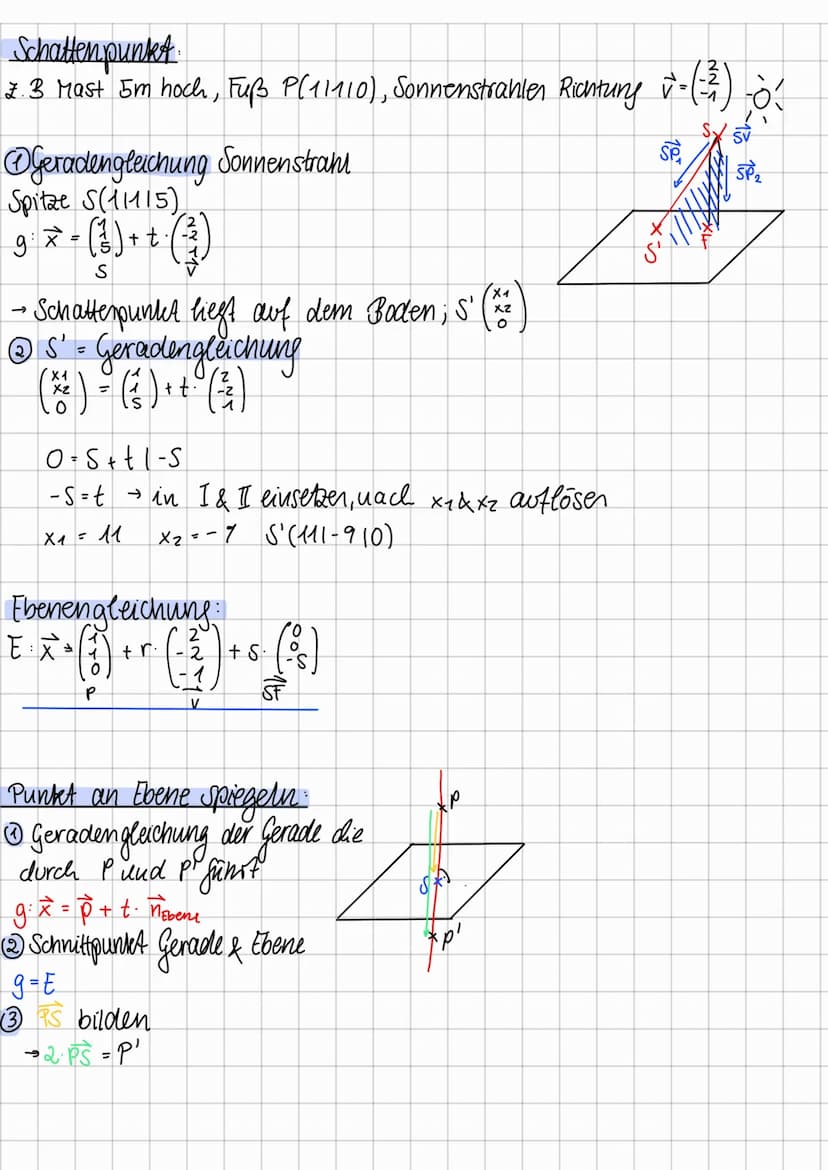 Schattenpunkt:
z.B Mast 5m hoch, Fuß P(1|1|0), Sonnenstrahlen Richtung v⃗ = (2 -2 -1)
① Geradengleichung Sonnenstrahl
Spitze S(1|1|5)
g: x⃗ = (1 1 5) + t · (2 -2 1)
S v⃗
S SV⃗
SP⃗₁ SP⃗₂
S' F
→ Schattenpunkt liegt auf dem Boden; S' (x1 x2 0)
② S' = Geradengleichung
(x1 x2 0) = (1 1 5) + t · (2 -2 1)
0 = 5 + t | -5
-5 = t → in I & II einsetzen, nach x1 & x2 auflösen
x1 = 11 x2 = -9 S'(11|-9|0)
Ebenengleichung:
E: x⃗ = (1 1 0) + r · (2 -2 -1) + s · (0 0 -5)
P v⃗ SF⃗
Punkt an Ebene spiegeln:
① Geradengleichung der Gerade die
durch P und P' führt
g: x⃗ = p⃗ + t · n⃗ Ebene
② Schnittpunkt Gerade & Ebene
g = E
③ PS⃗ bilden
→ 2 · PS⃗ = P'
P
S
P'